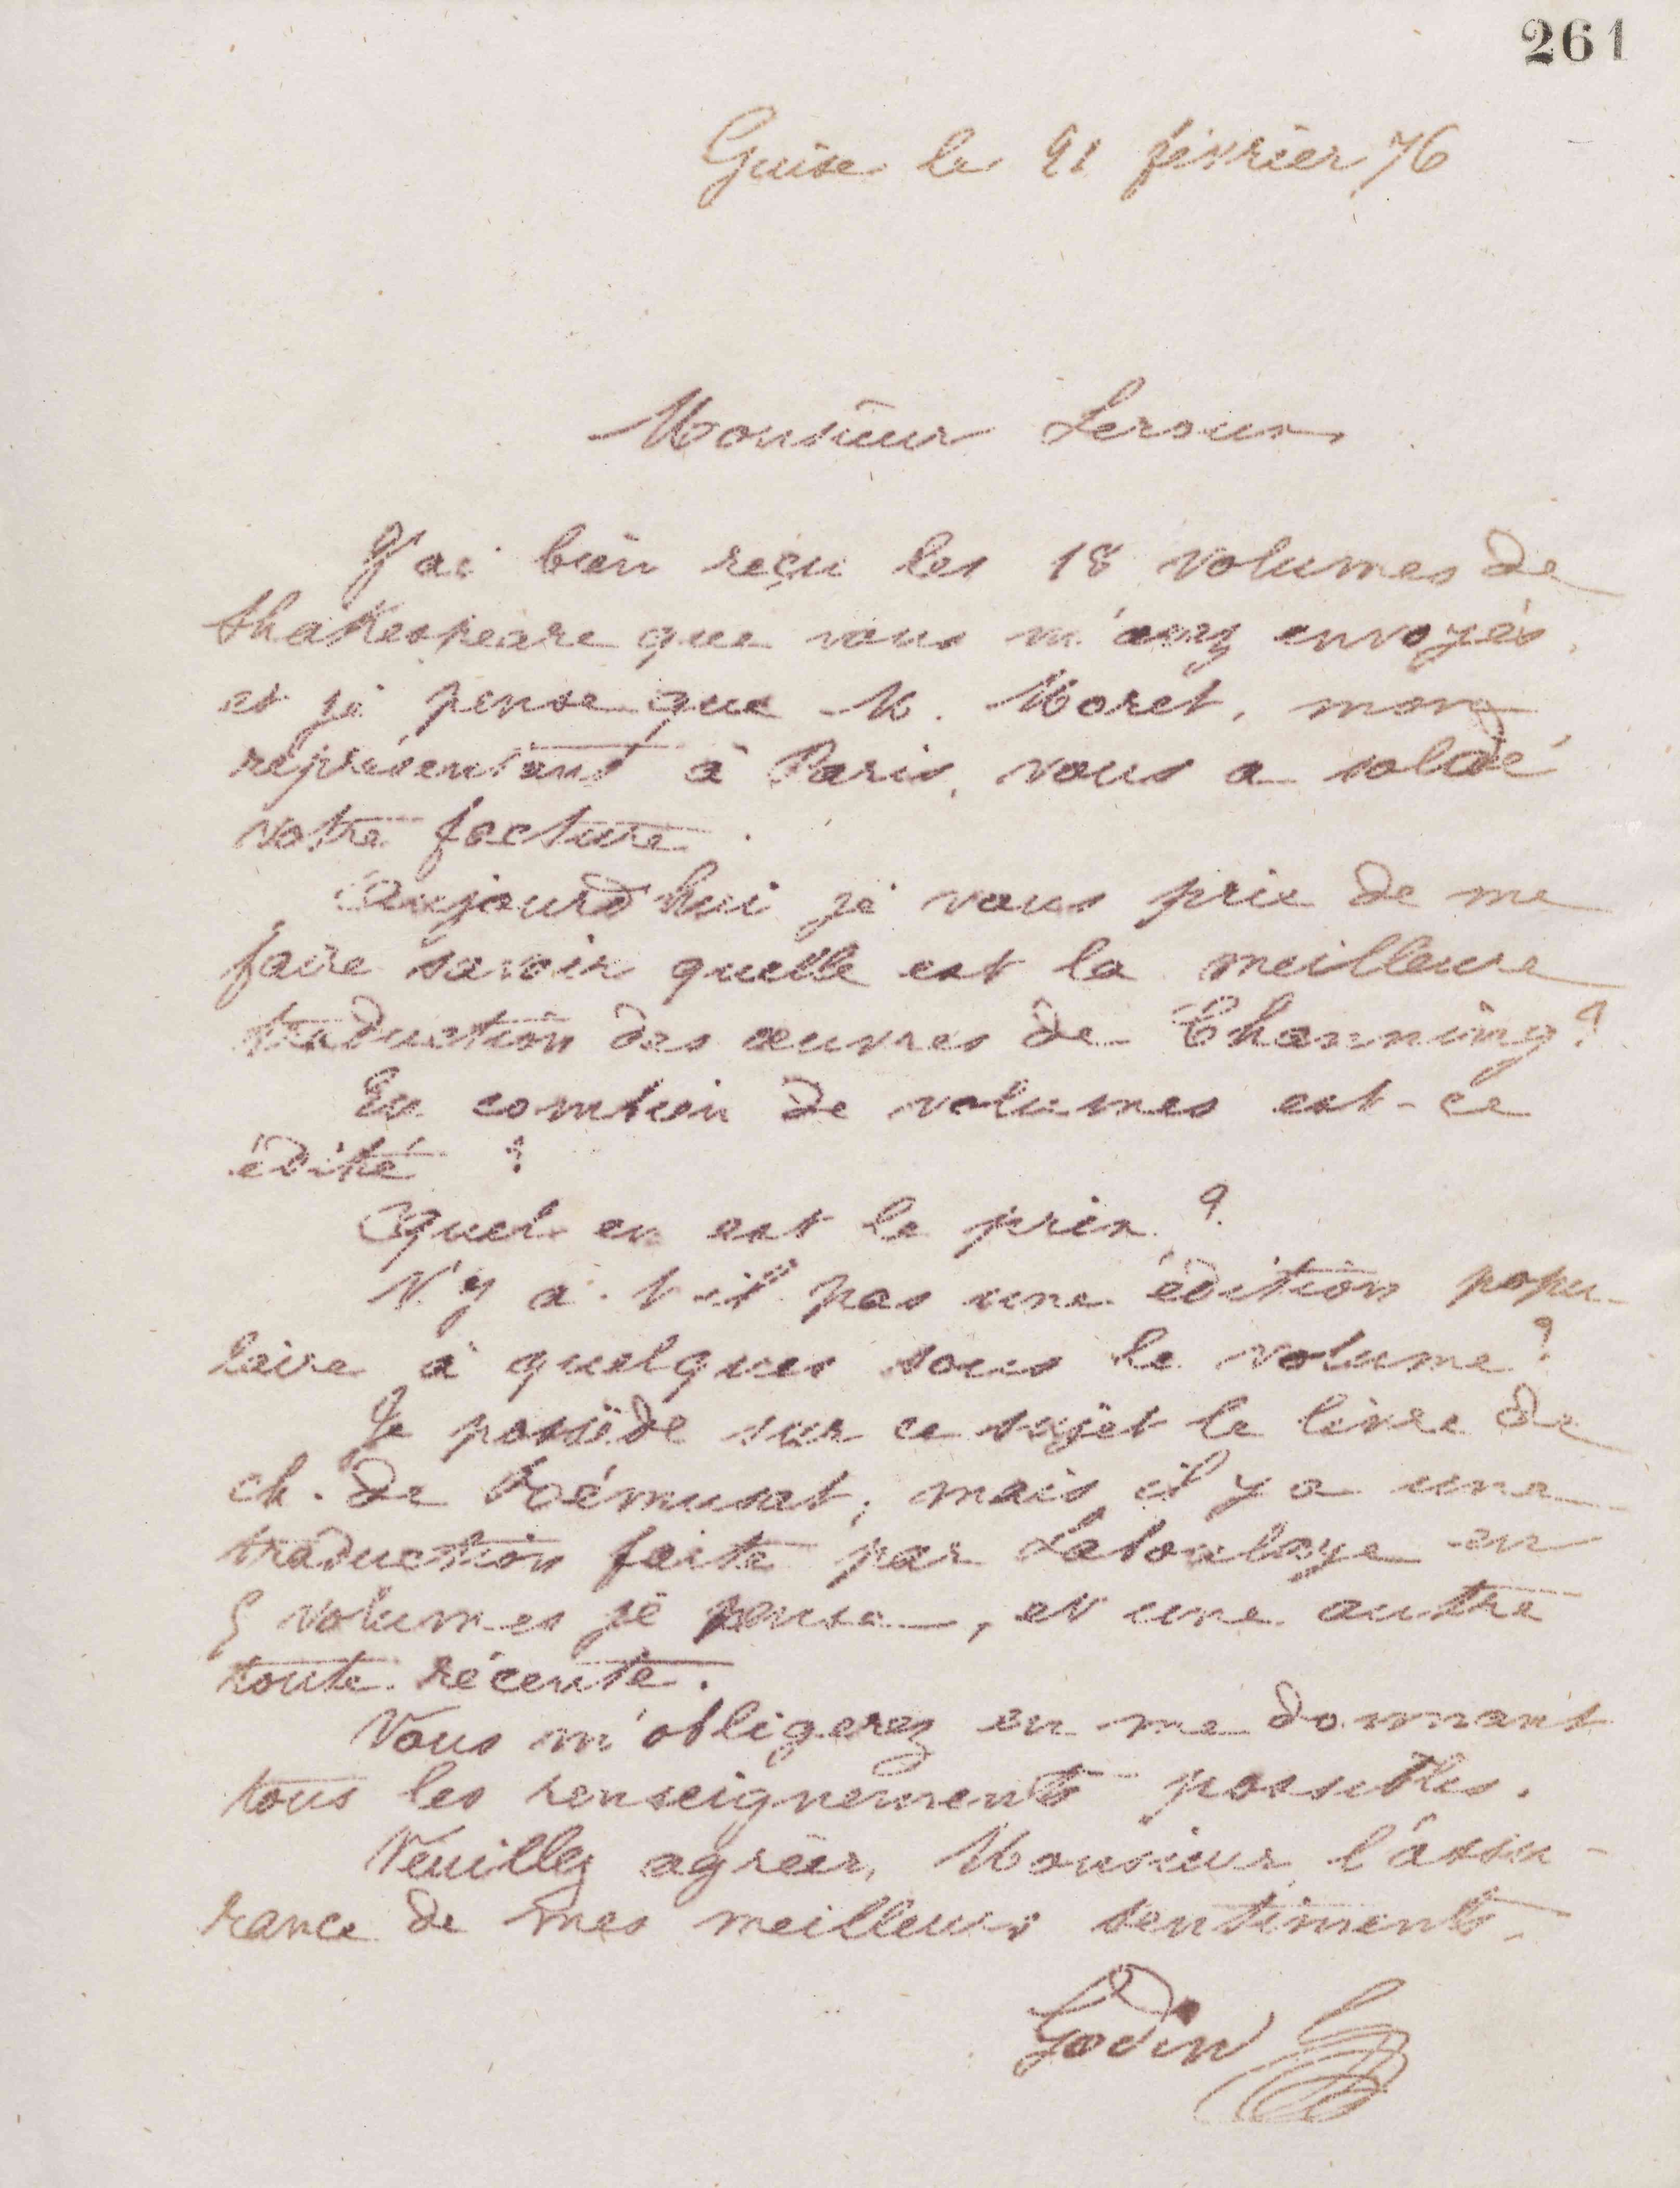 261
Guise le 21 février 76
Monsieur Leroux
J'ai bien reçu les 18 volumes de
Shakespeare que vous m'avez envoyés,
et je pense que M. Moret, mon
représentant à Paris, vous a soldé
votre facture.
Aujourd'hui je vous prie de me
faire savoir quelle est la meilleure
traduction des œuvres de Channing ?
En combien de volumes est-ce
édité ?
Quel en est le prix ?
N'y a-t-il pas une édition popu-
laire à quelques sous le volume ?
Je possède sur ce sujet le livre de
ch. de Rémusat, mais il y a une
traduction faite par Laboulaye en
5 volumes je pense, et une autre
toute récente.
Vous m'obligerez en me donnant
tous les renseignements possibles.
Veuillez agréer, Monsieur, l'assu-
rance de mes meilleurs sentiments.
Godin